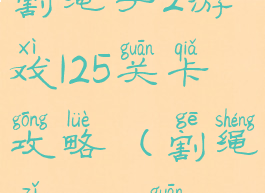 割绳子2游
xì guān qiǎ
戏125关卡
gōng lüè gē shéng
攻略（割绳
zǐ guān